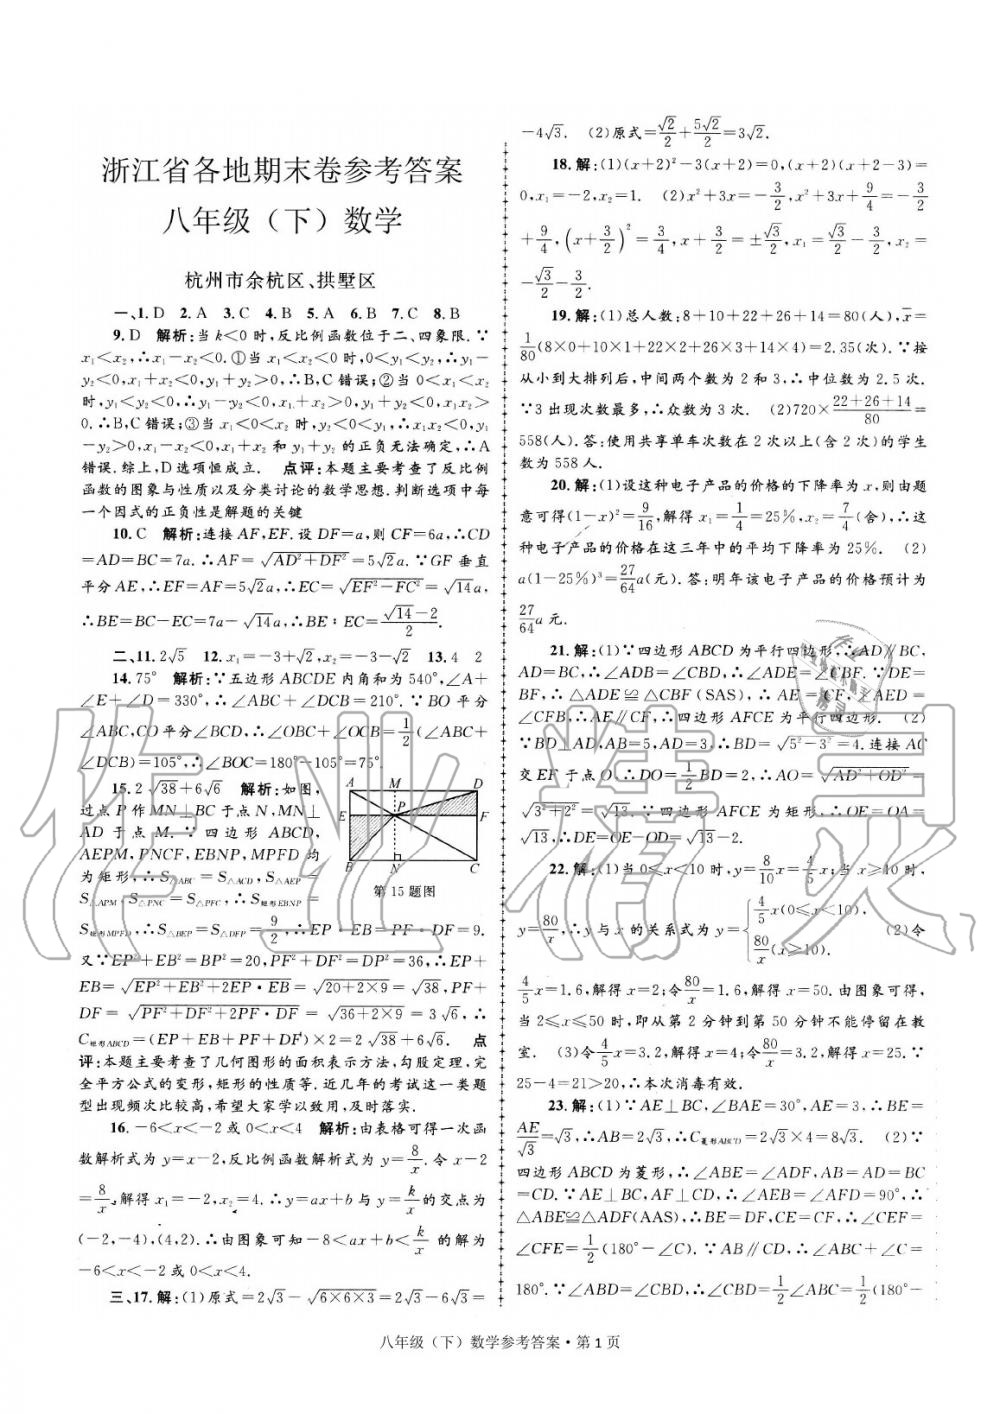 浙江省各地期末卷参考答案
八年级（下）数学
杭州市余杭区、拱墅区
一、1. D 2. A 3. C 4. B 5. A 6. B 7. C 8. B
9. D 解析:当 k<0 时,反比例函数位于二、四象限. ∵
x₁<x₂,∴x₁-x₂<0. ①当 x₁<x₂<0 时,0<y₁<y₂,∴y₁-
y₂<0,x₁+x₂<0,y₁+y₂>0,∴B,C 错误;②当 0<x₁<x₂
时,y₁<y₂<0,∴y₁-y₂<0,x₁+x₂>0,y₁+y₂<0,x₁x₂>
0. ∴B,C 错误;③当 x₁<0<x₂ 时,y₂<0<y₁,∴x₁x₂<0,y₁
-y₂>0,x₁-x₂<0,x₁+x₂ 和 y₁+y₂ 的正负无法确定,∴A
错误. 综上,D 选项恒成立. 点评:本题主要考查了反比例
函数的图象与性质以及分类讨论的数学思想. 判断选项中每
一个因式的正负性是解题的关键
10. C 解析:连接 AF,EF. 设 DF=a,则 CF=6a,∴CD
=AD=BC=7a. ∴AF=√(AD²+DF²)=5√2a. ∵GF 垂直
平分 AE,∴EF=AF=5√2a,∴EC=√(EF²-FC²)=√14a,
∴BE=BC-EC=7a-√14a,∴BE∶EC=(√14-2)/2.
二、11. 2√5 12. x₁=-3+√2,x₂=-3-√2 13. 4 2
14. 75° 解析:∵五边形 ABCDE 内角和为 540°,∠A+
∠E+∠D=330°,∴∠ABC+∠DCB=210°. ∵BO 平分
∠ABC,CO平分∠BCD,∴∠OBC+∠OCB=1/2(∠ABC+
∠DCB)=105°,∴∠BOC=180°-105°=75°.
15. 2√38+6√6 解析:如图,
过点 P 作 MN⊥BC 于点 N,MN⊥
AD 于点 M. ∵四边形 ABCD,
AEPM,PNCF,EBNP,MPFD 均
为矩形,∴S△ABC=S△ACD,S△AEP=
S△APM,S△PNC=S△PFC,∴S矩形EBNP=
S矩形MPFD,∴S△BEP=S△DFP=9/2,∴EP·EB=PF·DF=9.
又∵EP²+EB²=BP²=20,PF²+DF²=DP²=36,∴EP+
EB=√(EP²+EB²+2EP·EB)=√(20+2×9)=√38,PF+
DF=√(PF²+DF²+2PF·DF)=√(36+2×9)=3√6,∴
C矩形ABCD=(EP+EB+PF+DF)×2=2√38+6√6. 点
评:本题主要考查了几何图形的面积表示方法,勾股定理,完
全平方公式的变形,矩形的性质等. 近几年的考试这一类题
型出现频次比较高,希望大家学以致用,及时落实.
A M D
E P F
B N C
第 15 题图
16. -6<x<-2或 0<x<4 解析:由表格可得一次函
数解析式为 y=x-2,反比例函数解析式为 y=8/x. 令 x-2
=8/x,解得 x₁=-2,x₂=4. ∴y=ax+b 与 y=k/x的交点为
(-2,-4),(4,2). ∴由图象可知-8<ax+b<k/x 的解为
-6<x<-2 或 0<x<4.
三、17. 解:(1)原式=2√3-√(6×6×3)=2√3-6√3=
-4√3. (2)原式=√2/2+5√2/2=3√2.
18. 解:(1)(x+2)²-3(x+2)=0,(x+2)(x-1)=
0,x₁=-2,x₂=1. (2)x²+3x=-3/2,x²+3x+9/4=-3/2
+9/4,(x+3/2)²=3/4,x+3/2=±√3/2,x₁=√3/2-3/2,x₂=
-√3/2-3/2.
19. 解:(1)总人数:8+10+22+26+14=80(人),x̄=
1/80(8×0+10×1+22×2+26×3+14×4)=2.35(次). ∵按
从小到大排列后,中间两个数为 2 和 3,∴中位数为 2.5 次.
∵3 出现次数最多,∴众数为 3 次. (2)720×(22+26+14)/80=
558(人). 答:使用共享单车次数在 2 次以上(含 2 次)的学生
数为 558 人.
20. 解:(1)设这种电子产品的价格的下降率为 x,则由题
意可得(1-x)²=9/16,解得 x₁=1/4=25%,x₂=7/4(舍),∴这
种电子产品的价格在这三年中的平均下降率为 25%. (2)
a(1-25%)³=27/64a(元). 答:明年该电子产品的价格预计为
27/64a 元.
21. 解:(1)∵四边形 ABCD 为平行四边形,∴AD∥BC,
AD=BC,∴∠ADB=∠CBD,∴∠ADE=∠CBF. ∵DE=
BF,∴△ADE≌△CBF(SAS),∴AE=CF,∠AED=
∠CFB,∴AE∥CF,∴四边形 AFCE 为平行四边形. (2)
∵BD⊥AD,AB=5,AD=3,∴BD=√(5²-3²)=4. 连接 AC
交 EF 于点 O,∴DO=1/2BD=2,∴AO=√(AD²+OD²)=
√(3²+2²)=√13. ∵四边形 AFCE 为矩形,∴OE=OA=
√13,∴DE=OE-OD=√13-2.
22. 解:(1)当 0≤x<10 时,y=8/10x=4/5x;当 x≥10 时,
y=80/x,∴y 与 x 的关系式为 y={4/5x(0≤x<10), 80/x(x≥10). (2)令
4/5x=1.6,解得 x=2;令80/x=1.6,解得 x=50. 由图象可得,
当 2≤x≤50 时,即从第 2 分钟到第 50 分钟不能停留在教
室. (3)令4/5x=3.2,解得 x=4;令80/x=3.2,解得 x=25. ∵
25-4=21>20,∴本次消毒有效.
23. 解:(1)∵AE⊥BC,∠BAE=30°,AE=3,∴BE=
AE/√3=√3,∴AB=2√3,∴C菱形ABCD=2√3×4=8√3. (2)∵
四边形 ABCD 为菱形,∴∠ABE=∠ADF,AB=AD=BC
=CD. ∵AE⊥BC,AF⊥CD,∴∠AEB=∠AFD=90°,∴
△ABE≌△ADF(AAS),∴BE=DF,CE=CF,∴∠CEF=
∠CFE=1/2(180°-∠C). ∵AB∥CD,∴∠ABC+∠C=
180°. ∵∠ABD=∠CBD,∴∠CBD=1/2∠ABC=1/2(180°-
八年级（下）数学参考答案·第 1 页
作业精灵